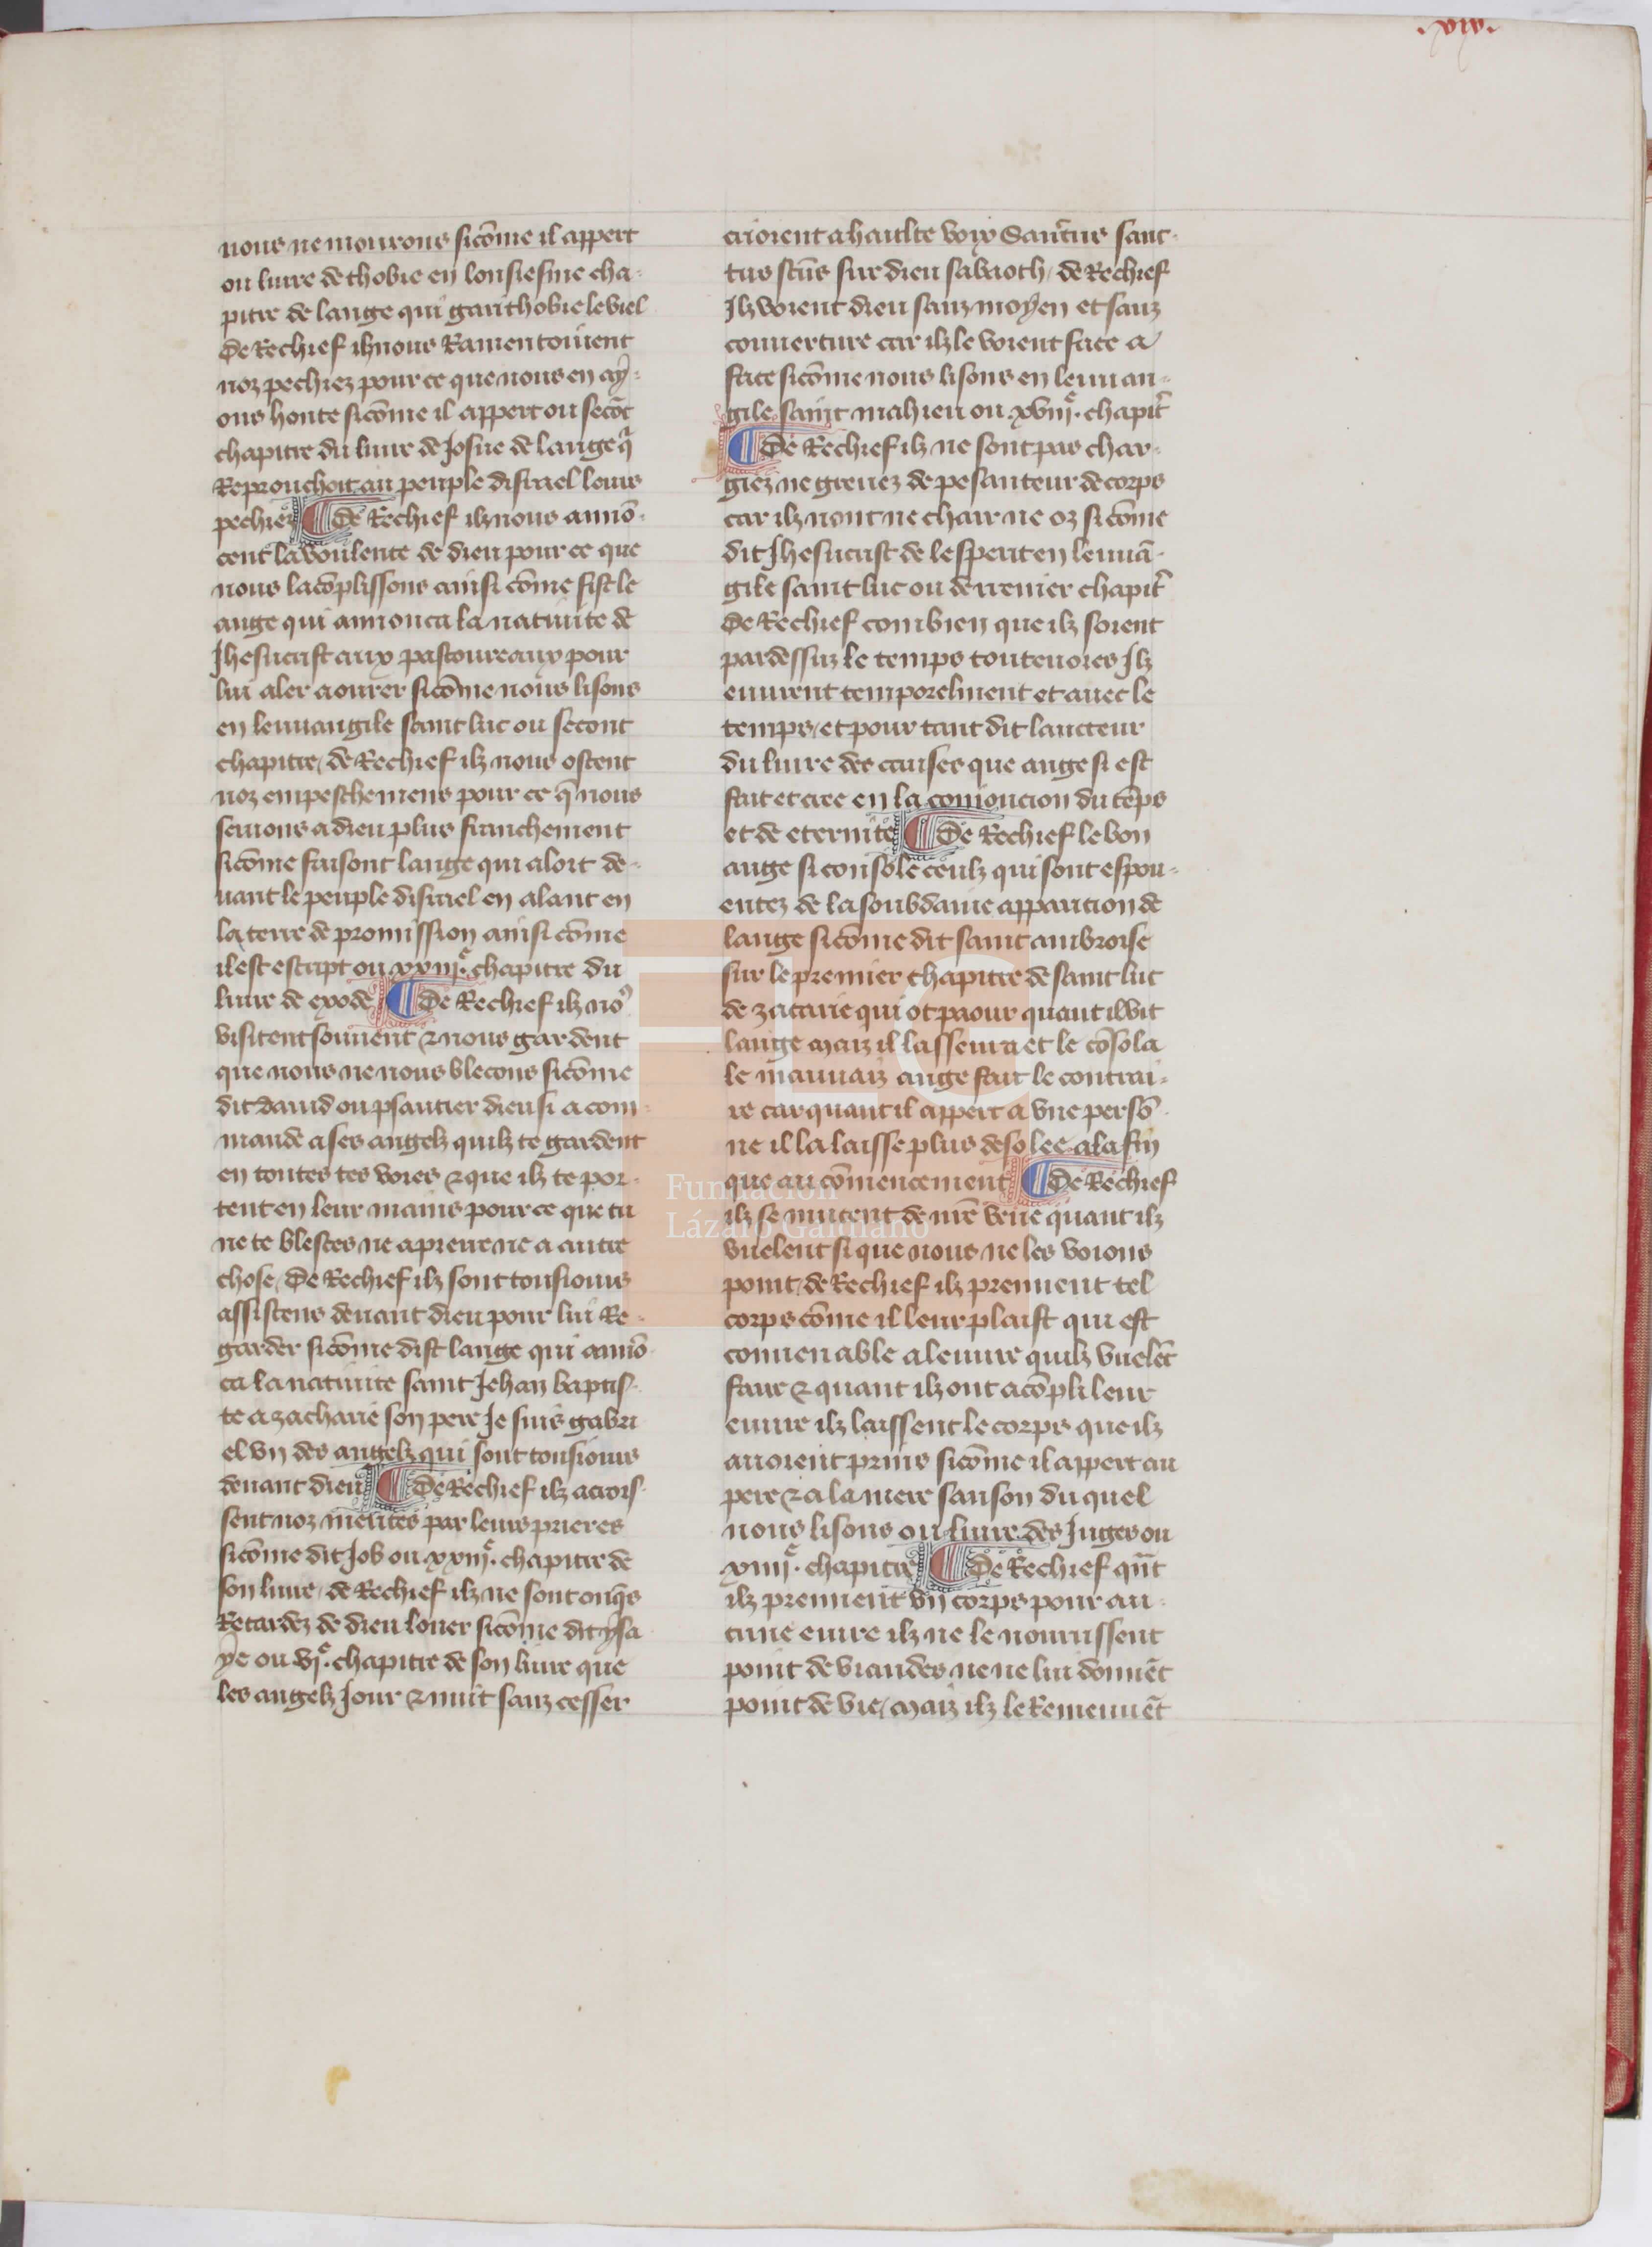 .xix.
nous ne mourons sicōme il appert
ou liure de thobie en lonsiesme cha-
pitre de lange qui gari thobie le viel
De Rechief ilz nous Ramentoiuent
noz pechiez pour ce que nous en ay-
ons honte sicōme il appert ou secōt
chapitre du liure de Josue de lange q̄
Reprouchoit au peuple disrael leurs
pechiez ¶ De Rechief ilz nous annō-
cent la voulente de dieu pour ce que
nous lacōplissons ainsi cōme fist le
ange qui annonca la natiuite de
Jhesucrist aux pastoureaux pour
lui aler aourer sicōme nous lisons
en leuuangile saint luc ou second
chapitre / de Rechief ilz nous ostent
noz empeschemens pour ce q̄ nous
seruons a dieu plus franchement
sicōme faisont lange qui aloit de-
uant le peuple disrael en alant en
la terre de promission ainsi cōme
il est escript ou xxiij.e chapitre du
liure de exode ¶ De Rechief ilz no9
visitent souuent & nous gardent
que nous ne nous blecons sicōme
dit dauid ou psautier dieu si a com-
mande a ses angelz quilz te gardent
en toutes tes voies & que ilz te por-
tent en leur mains pour ce que tu
ne te bleces ne a pierre ne a autre
chose / De Rechief ilz sont tousiours
assistens deuant dieu pour lui Re-
garder sicōme dist lange qui annō-
ca la natiuite saint Jehan baptis-
te a zacharie son pere Je suis gabri
el vn des angelz qui sont tousiours
deuant dieu ¶ De Rechief ilz acrois-
sent noz merites par leurs prieres
sicōme dit Job ou xxiij.e chapitre de
son liure / de Rechief ilz ne sont onq̄s
Retardez de dieu louer sicōme dit ysa
ye ou vj.e chapitre de son liure que
les angelz Jour & nuit sanz cesser
crioient a haulte voix Sanctus sanc-
tus sc̄us sire dieu sabaoth / de Rechief
Ilz voient dieu sanz moyen et sanz
couuerture car ilz le voient face a
face sicōme nous lisons en leuuan-
gile saint mahieu ou xviij.e chapit̄
¶ De Rechief ilz ne sont pas char-
giez ne greuez de pesanteur de corps
car ilz nont ne chair ne oz sicōme
dit Jhesucrist de lesperit en leuuā-
gile saint luc ou derrenier chapit̄
De Rechief combien que ilz soient
pardessuz le temps touteuoies Ilz
euurent temporelment et auec le
temps / et pour tant dit laucteur
du liure des causes que ange si est
fait et cree en la coniouncion du tēps
et de eternite ¶ De Rechief le bon
ange si console ceulz qui sont espou-
entez de la soubdaine apparicion de
lange sicōme dit saint ambroise
sur le premier chapitre de saint luc
de zacarie qui ot paour quant il vit
lange maiz il lasseura et le cōsola
le mauuaiz ange fait le contrai-
re car quant il appert a vne persō-
ne il la laisse plus desolee a la fin
que au cōmencement ¶ De Rechief
ilz se mucent de nr̄e veue quant ilz
vuelent si que nous ne les voions
point / de Rechief ilz prennent tel
corps cōme il leur plaist qui est
conuenable a leuure quilz vuelēt
faire & quant ilz ont acōpli leur
euure ilz laissent le corps que ilz
auoient prins sicōme il appert au
pere & a la mere sanson du quel
nous lisons ou liure des Juges ou
xiiij.e chapitre ¶ De Rechief qn̄t
ilz prennent vn corps pour au-
cune euure ilz ne le nourrissent
point de viandes ne ne lui donnēt
point de vie / maiz ilz le Remeuuēt
Fundación
Lázaro Galdiano